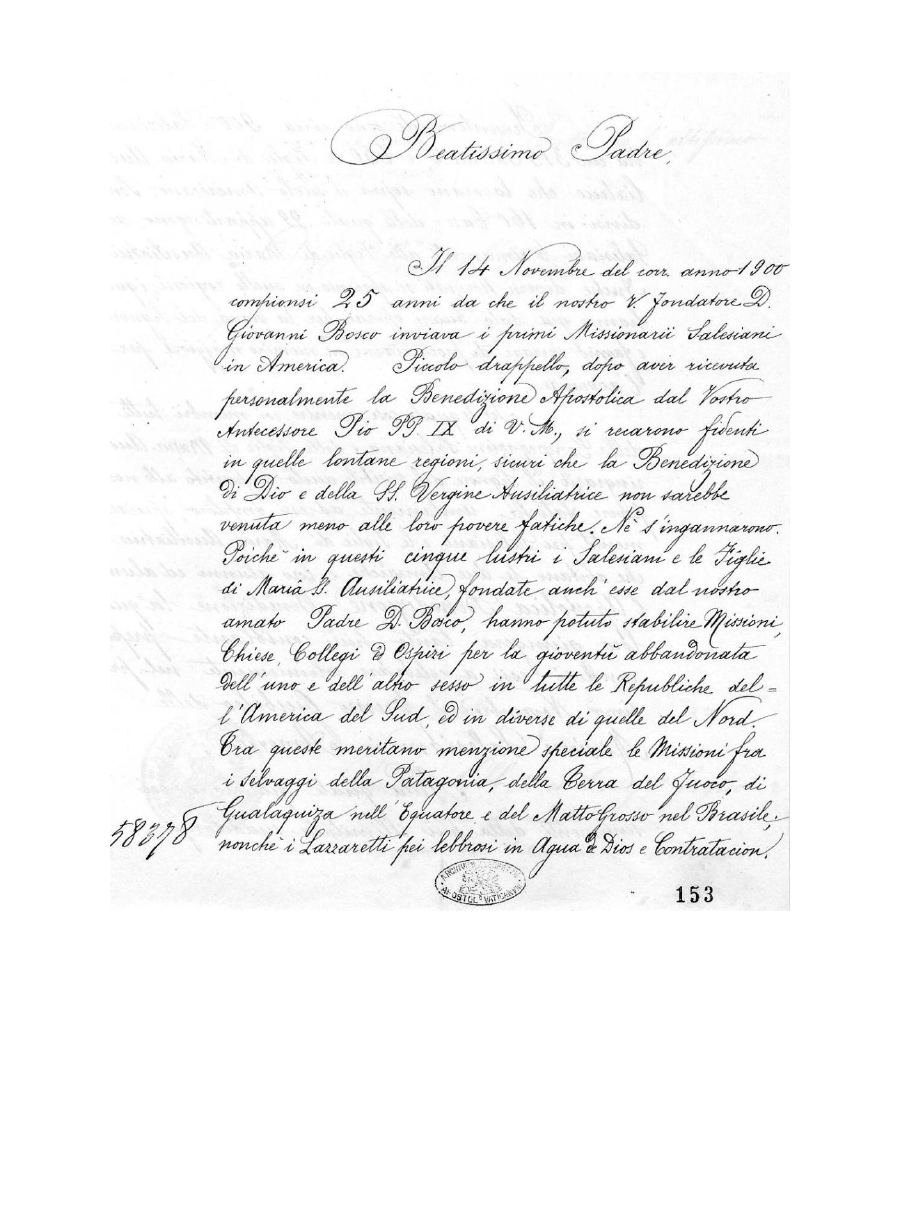 Beatissimo Padre,
Il 14 Novembre del corr. anno 1900
compionsi 25 anni da che il nostro V. fondatore D.
Giovanni Bosco inviava i primi Missionarii Salesiani
in America. Piccolo drappello, dopo aver ricevuta
personalmente la Benedizione Apostolica dal Vostro
Antecessore Pio PP. IX di V. M., si recarono fidenti
in quelle lontane regioni, sicuri che la Benedizione
di Dio e della SS. Vergine Ausiliatrice non sarebbe
venuta meno alle loro povere fatiche. Nè s'ingannarono.
Poichè in questi cinque lustri i Salesiani e le Figlie
di Maria SS. Ausiliatrice, fondate anch'esse dal nostro
amato Padre D. Bosco, hanno potuto stabilire Missioni,
Chiese, Collegi ed Ospizi per la gioventù abbandonata
dell'uno e dell'altro sesso in tutte le Repubbliche del=
l'America del Sud, ed in diverse di quelle del Nord.
Tra queste meritano menzione speciale le Missioni fra
i selvaggi della Patagonia, della Terra del Fuoco, di
Gualaquiza nell'Equatore e del Matto Grosso nel Brasile;
58378
nonchè i Lazzaretti pei lebbrosi in Agua de Dios e Contratacion.
153